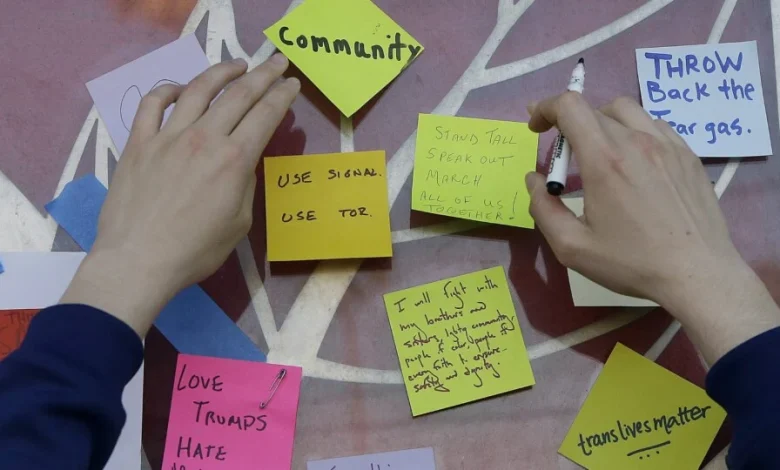 Community
THROW
Back the
Tear gas.
STAND TALL
SPEAK OUT
MARCH
ALL OF US
TOGETHER!
USE SIGNAL.
USE TOR.
I will fight with
my brothers and
sisters, lgbtq community,
people of color, people for
every faith to ensure
safety and dignity.
LOVE
TRUMPS
HATE
trans lives matter